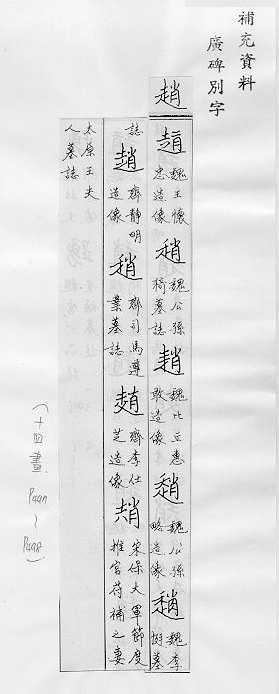 補充資料
廣碑別字
趙
魏王懷忠造像 魏公孫猗墓誌 趙 魏比丘惠敢造像 魏公孫略造像 魏李挺墓
誌 趙 齊靜明造像 齊司馬遵業墓誌 齊李仕芝造像 宋保大軍節度推官苻補之妻
太原王夫人墓誌
(十四畫